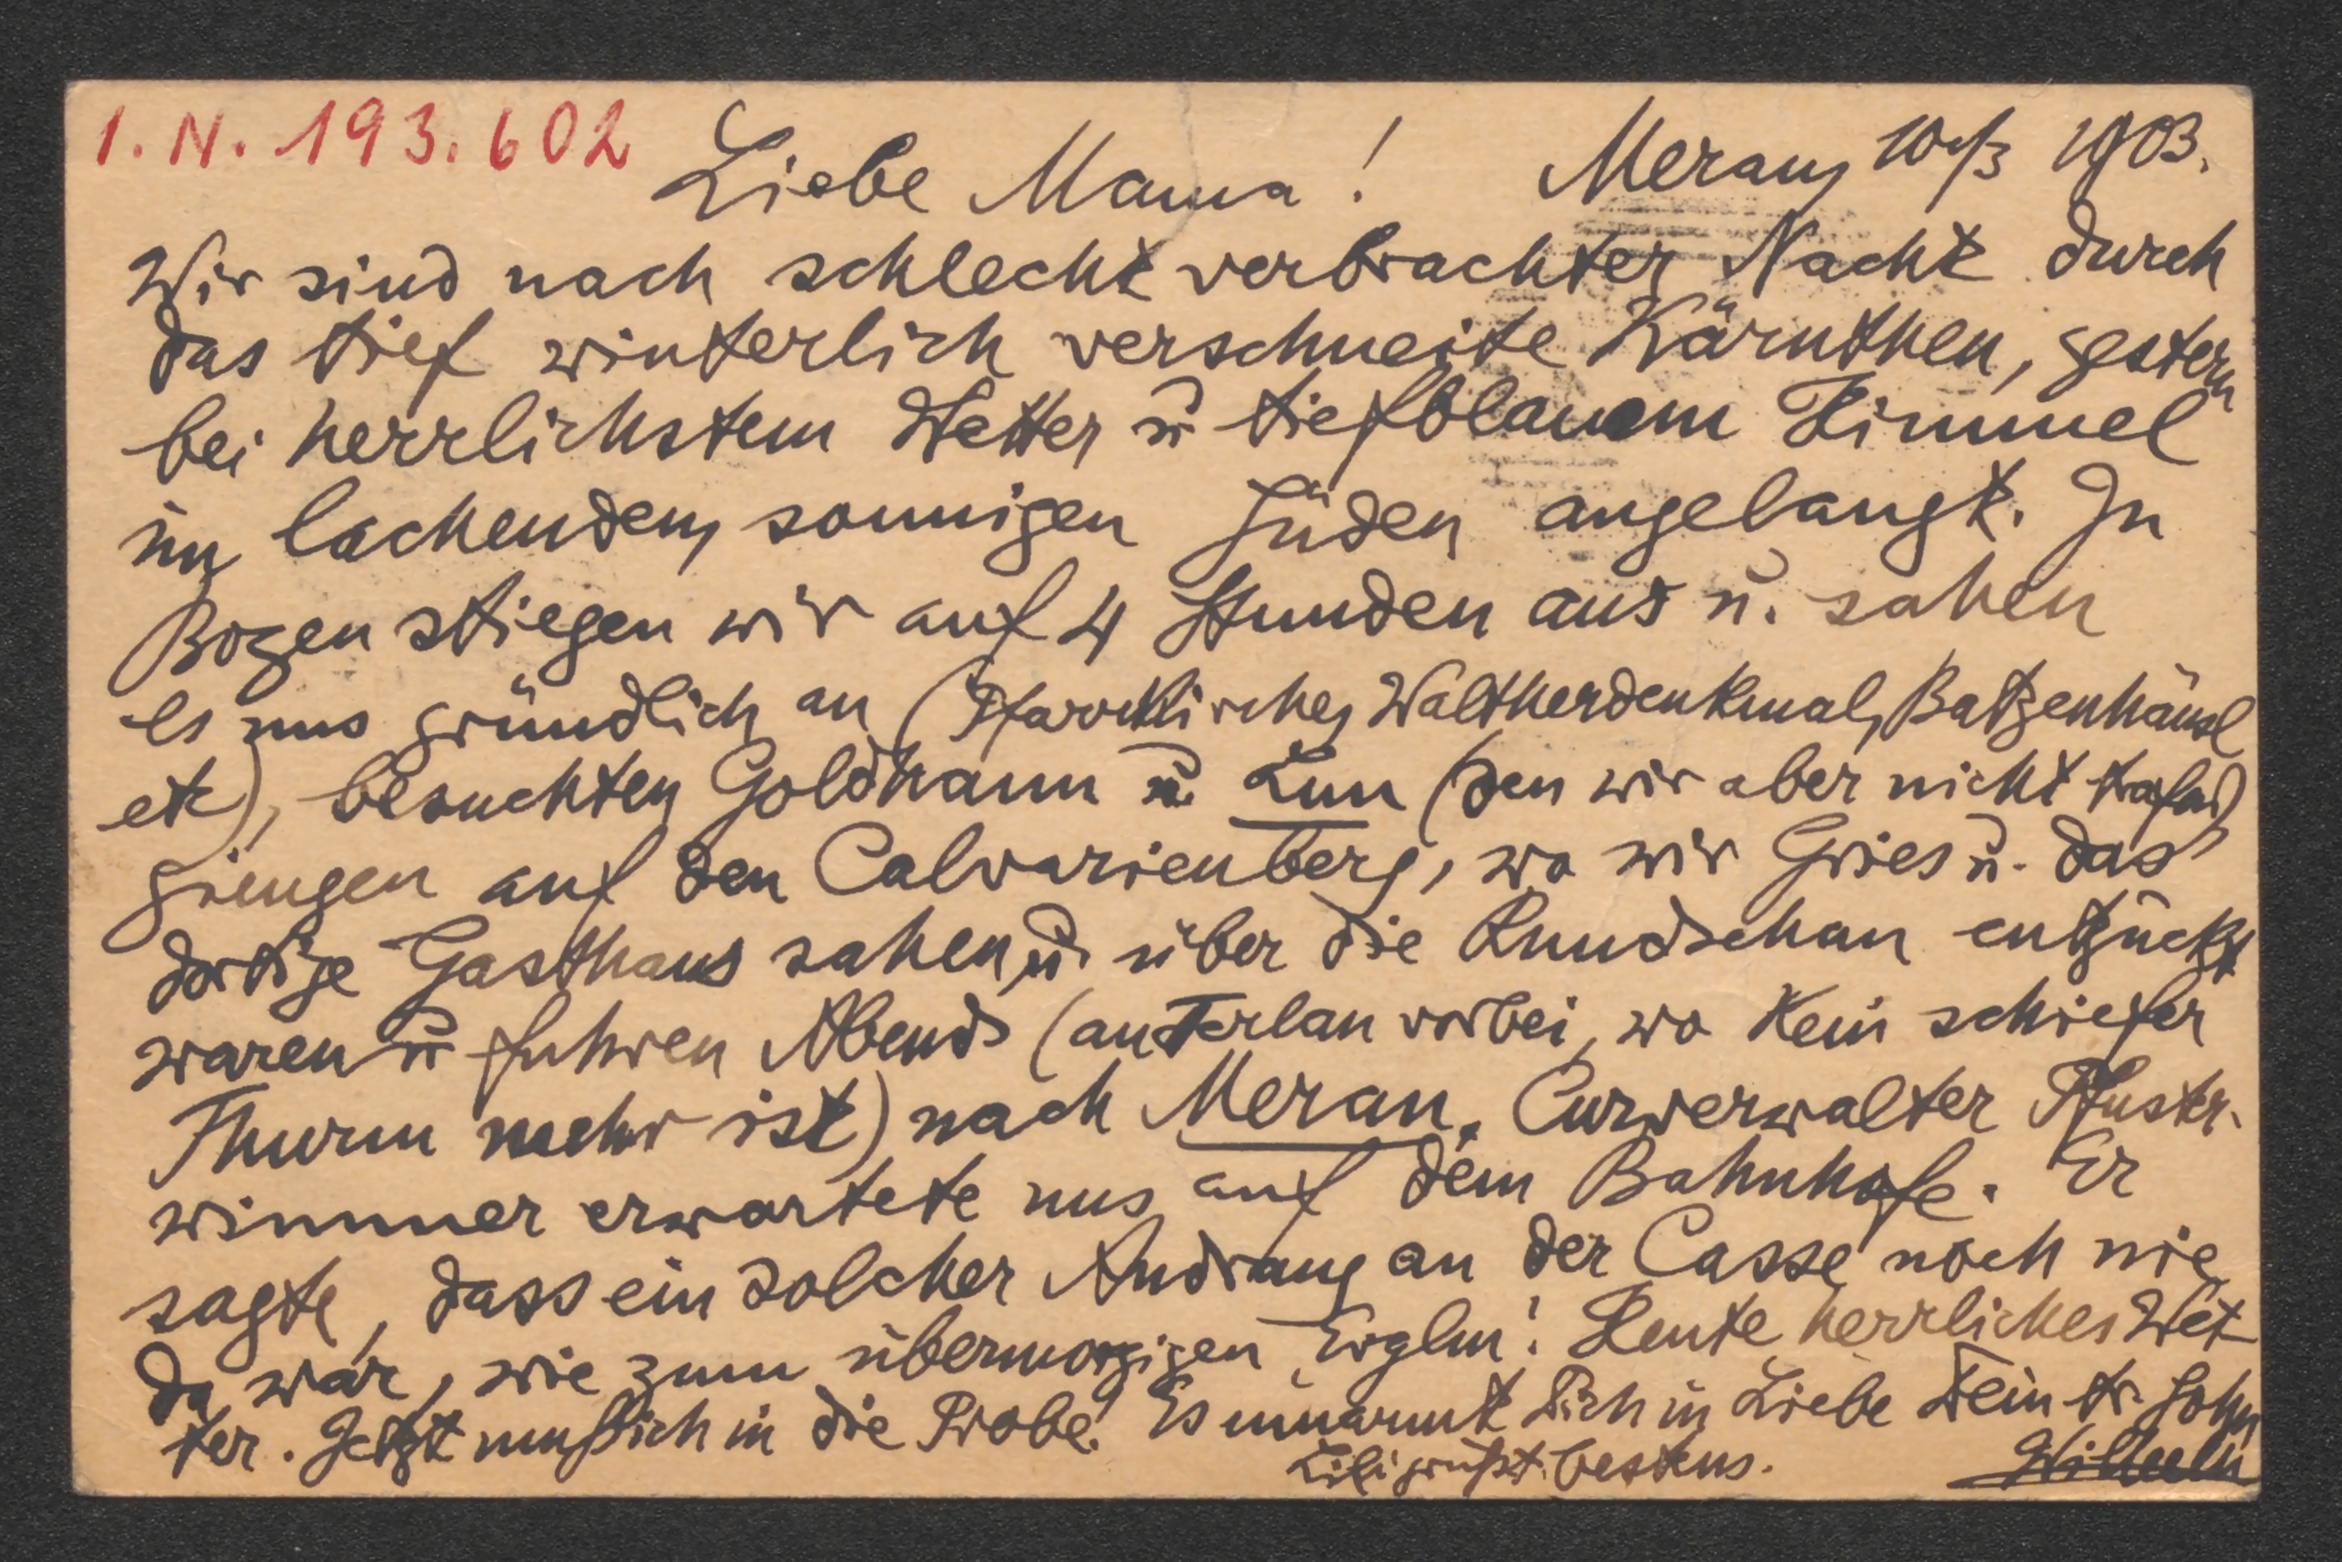 I. N. 193.602
Liebe Mama! Meran, 10/3 1903.
Wir sind nach schlecht verbrachter Nacht durch
das tief winterlich verschneite Kärnthen, gestern
bei herrlichstem Wetter u tiefblauem Himmel
im lachenden, sonnigen Süden angelangt. In
Bozen stiegen wir auf 4 Stunden aus u. sahen
es uns gründlich an (Pfarrkirche, Waltherdenkmal, Batzenhäusl
etc), besuchten Goldhann u. Lun (den wir aber nicht trafen)
giengen auf den Calvarienberg, wo wir Gries u. das
dortige Gasthaus sahen, u. über die Rundschau entzückt
waren u fuhren Abends (an Terlan vorbei, wo kein schiefer
Thurm mehr ist) nach Meran. Curverwalter Pfuster-
wimmer erwartete uns auf dem Bahnhofe. Er
sagte, dass ein solcher Andrang an der Casse noch nie
da war, wie zum übermorgigen! Heute herrliches Wet
ter. Jetzt muß ich in die Probe! Es umarmt Dich in Liebe Dein tr. Sohn
Lili grüßt bestens. Wilhelm